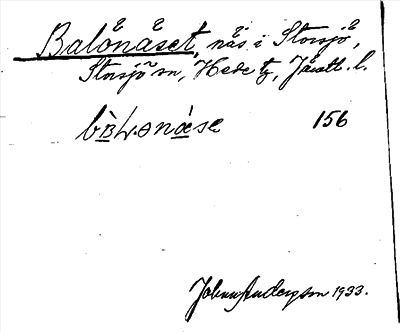 Balånäset, näs i Storsjö,
Storsjö sn, Hede tg, Jämtl. l.
156
Johan Anderson 1933.